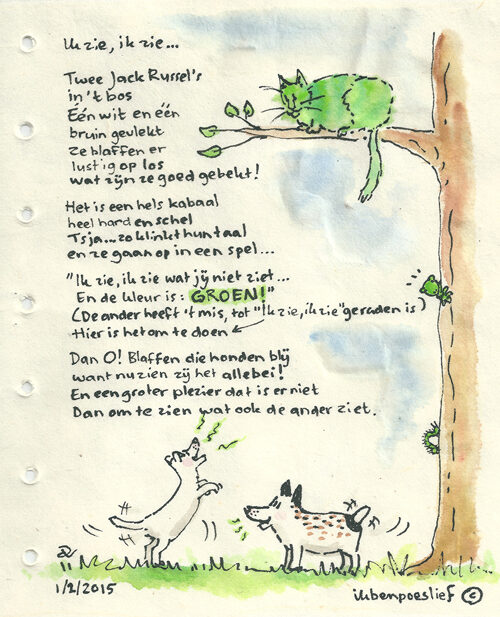 Ik zie, ik zie...
Twee Jack Russel's
in 't bos
Één wit en één
bruin gevlekt
Ze blaffen er
lustig op los
wat zijn ze goed gebekt!
Het is een hels kabaal
heel hard en schel
Tsja... zo klinkt hun taal
en ze gaan op in een spel...
"Ik zie, ik zie wat jij niet ziet...
En de kleur is: GROEN!"
(De ander heeft 't mis, tot "Ik zie, ik zie" geraden is)
Hier is het om te doen
Dan O! Blaffen die honden blij
want nu zien zij het allebei!
En een groter plezier dat is er niet
Dan om te zien wat ook de ander ziet.
1/2/2015
ikbenpoeslief ©